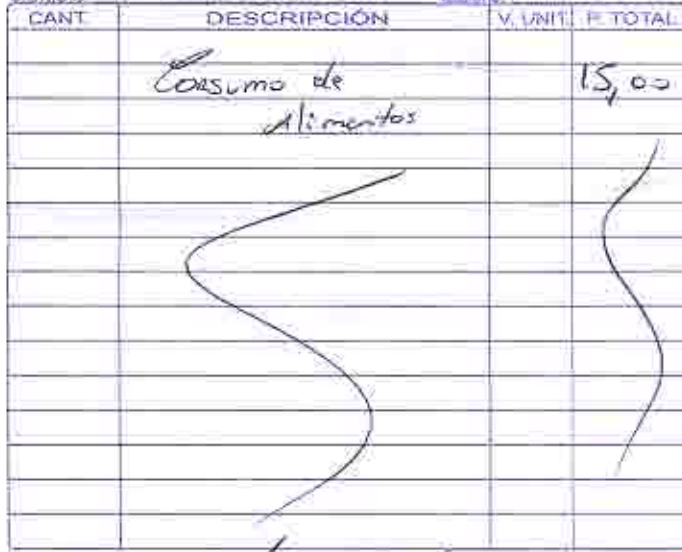 CANT. DESCRIPCIÓN V. UNIT. P. TOTAL
Consumo de 15,00
Alimentos